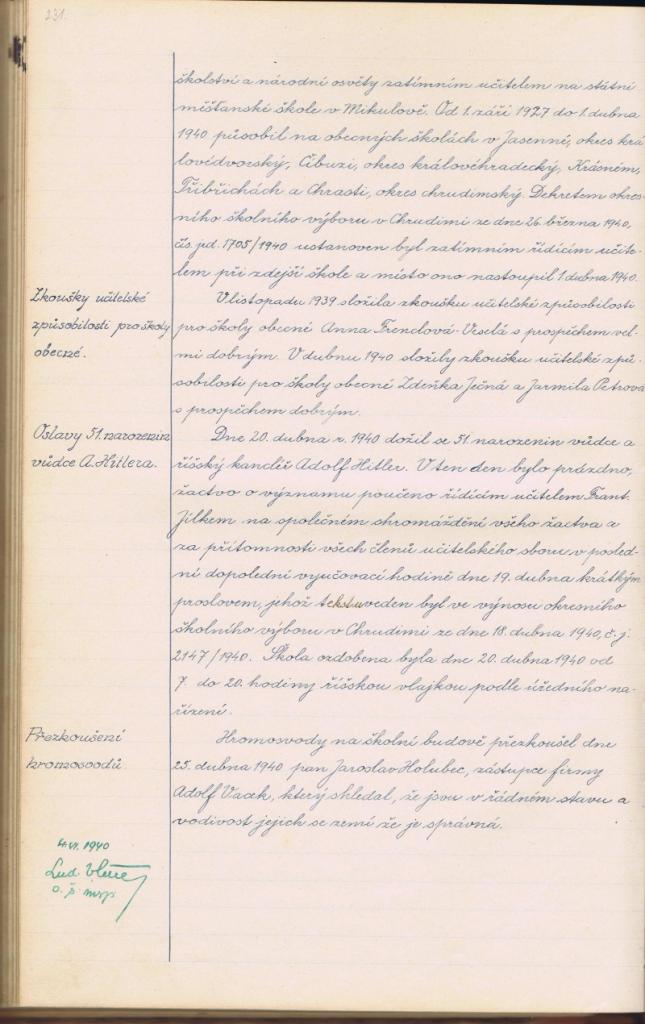 231.
školství a národní osvěty zatímním učitelem na státní
měšťanské škole v Mikulově. Od 1. září 1927 do 1. dubna
1940 působil na obecných školách v Jasenné, okres krá-
lovédvorský, Libuzi, okres královéhradecký, Krásném,
Třibřichách a Chrasti, okres chrudimský. Dekretem okres-
ního školního výboru v Chrudimi ze dne 26. března 1940,
čís. jed. 1705/1940 ustanoven byl zatímním řídícím učite-
lem při zdejší škole a místo ono nastoupil 1. dubna 1940.
Zkoušky učitelské
způsobilosti pro školy
obecné.
V listopadu 1939 složila zkoušku učitelské způsobilosti
pro školy obecné Anna Frenclová-Veselá s prospěchem vel-
mi dobrým. V dubnu 1940 složily zkoušku učitelské způ-
sobilosti pro školy obecné Zdeňka Ječná a Jarmila Petrová
s prospěchem dobrým.
Oslavy 51. narozenin
vůdce A. Hitlera.
Dne 20. dubna r. 1940 dožil se 51. narozenin vůdce a
říšský kancléř Adolf Hitler. V ten den bylo prázdno,
žactvo o významu poučeno řídícím učitelem Frant.
Jílkem na společném shromáždění všeho žactva a
za přítomnosti všech členů učitelského sboru v posled-
ní dopolední vyučovací hodině dne 19. dubna krátkým
proslovem, jehož text uveden byl ve výnosu okresního
školního výboru v Chrudimi ze dne 18. dubna 1940, č. j.
2147/1940. Škola ozdobena byla dne 20. dubna 1940 od
7. do 20. hodiny říšskou vlajkou podle úředního na-
řízení.
Přezkoušení
hromosvodů
Hromosvody na školní budově přezkoušel dne
25. dubna 1940 pan Jaroslav Holubec, zástupce firmy
Adolf Vacek, který shledal, že jsou v řádném stavu a
vodivost jejich se zemí že je správná.
4. VI. 1940
Lud.
o. š. insp.